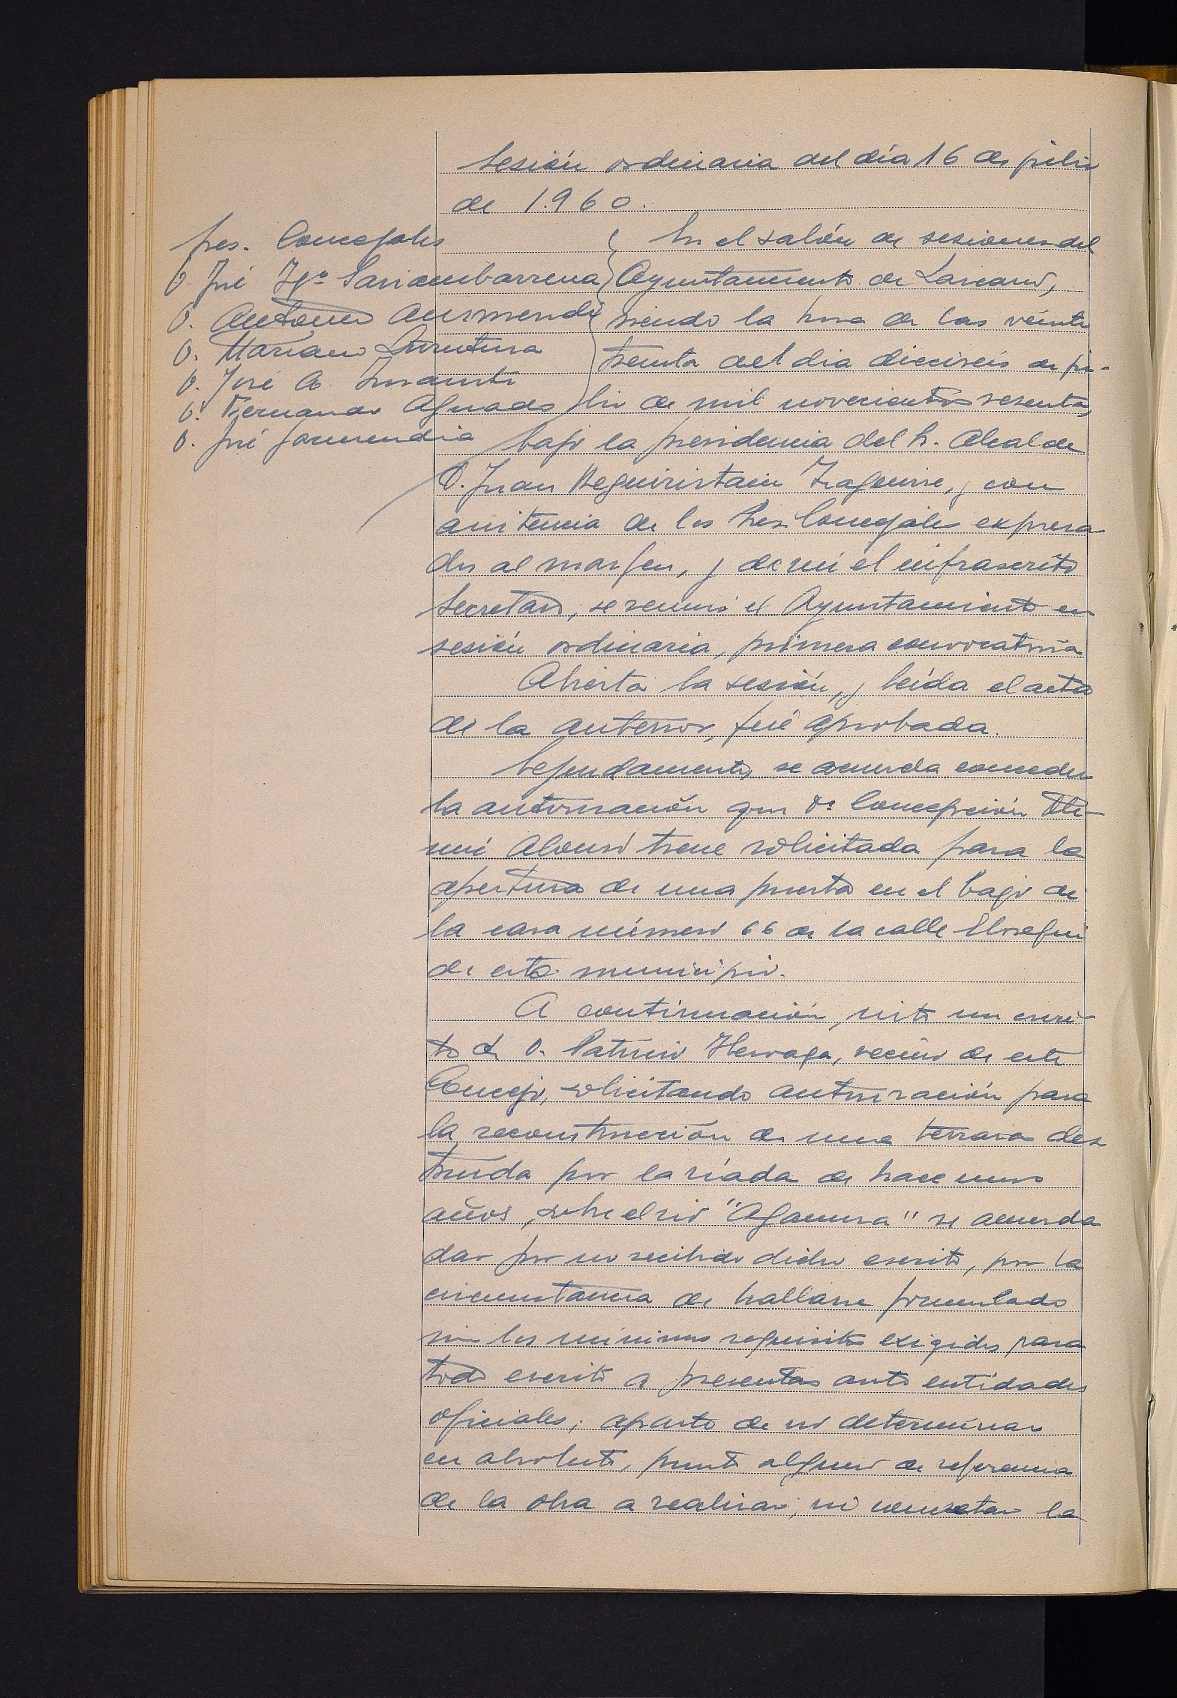 Sesión ordinaria del día 16 de julio
de 1.960.
Sres. Concejales
D. José Igº Sarasibarrena
D. Antonio Aurmendi
D. Mariano
D. José A. Insausti
D. Fernando Aguado
D. José Garmendia
En el salón de sesiones del
Ayuntamiento de Lazcano,
siendo la hora de las veinte
treinta del día dieciseis de ju-
lio de mil novecientos sesenta,
bajo la presidencia del Sr. Alcalde
D. Juan Aseguiristain Iraguirre, y con
asistencia de los Sres. Concejales expresa
dos al margen, y de mi el infrascrito
Secretario, se reunió el Ayuntamiento en
sesión ordinaria, primera convocatoria
Abierta la sesión, y leída el acta
de la anterior, fué aprobada.
Segundamente, se acuerda conceder
la autorización que Dª Concepción
Alonso tiene solicitada para la
apertura de una puerta en el bajo de
la casa número 66 de la calle Elosegui
de este municipio.
A continuación, visto un escri-
to de D. Patricio, vecino de este
Concejo, solicitando autorización para
la reconstrucción de una terraza des
truida por la riada de hace unos
años, sobre el rio "Agaunza" se acuerda
dar por no recibido dicho escrito, por la
circunstancia de hallarse formulado
sin los mínimos requisitos exigidos para
todo escrito a presentar ante entidades
oficiales; aparte de no determinar
en absoluto, punto alguno de referencia
de la obra a realizar, ni concretar la